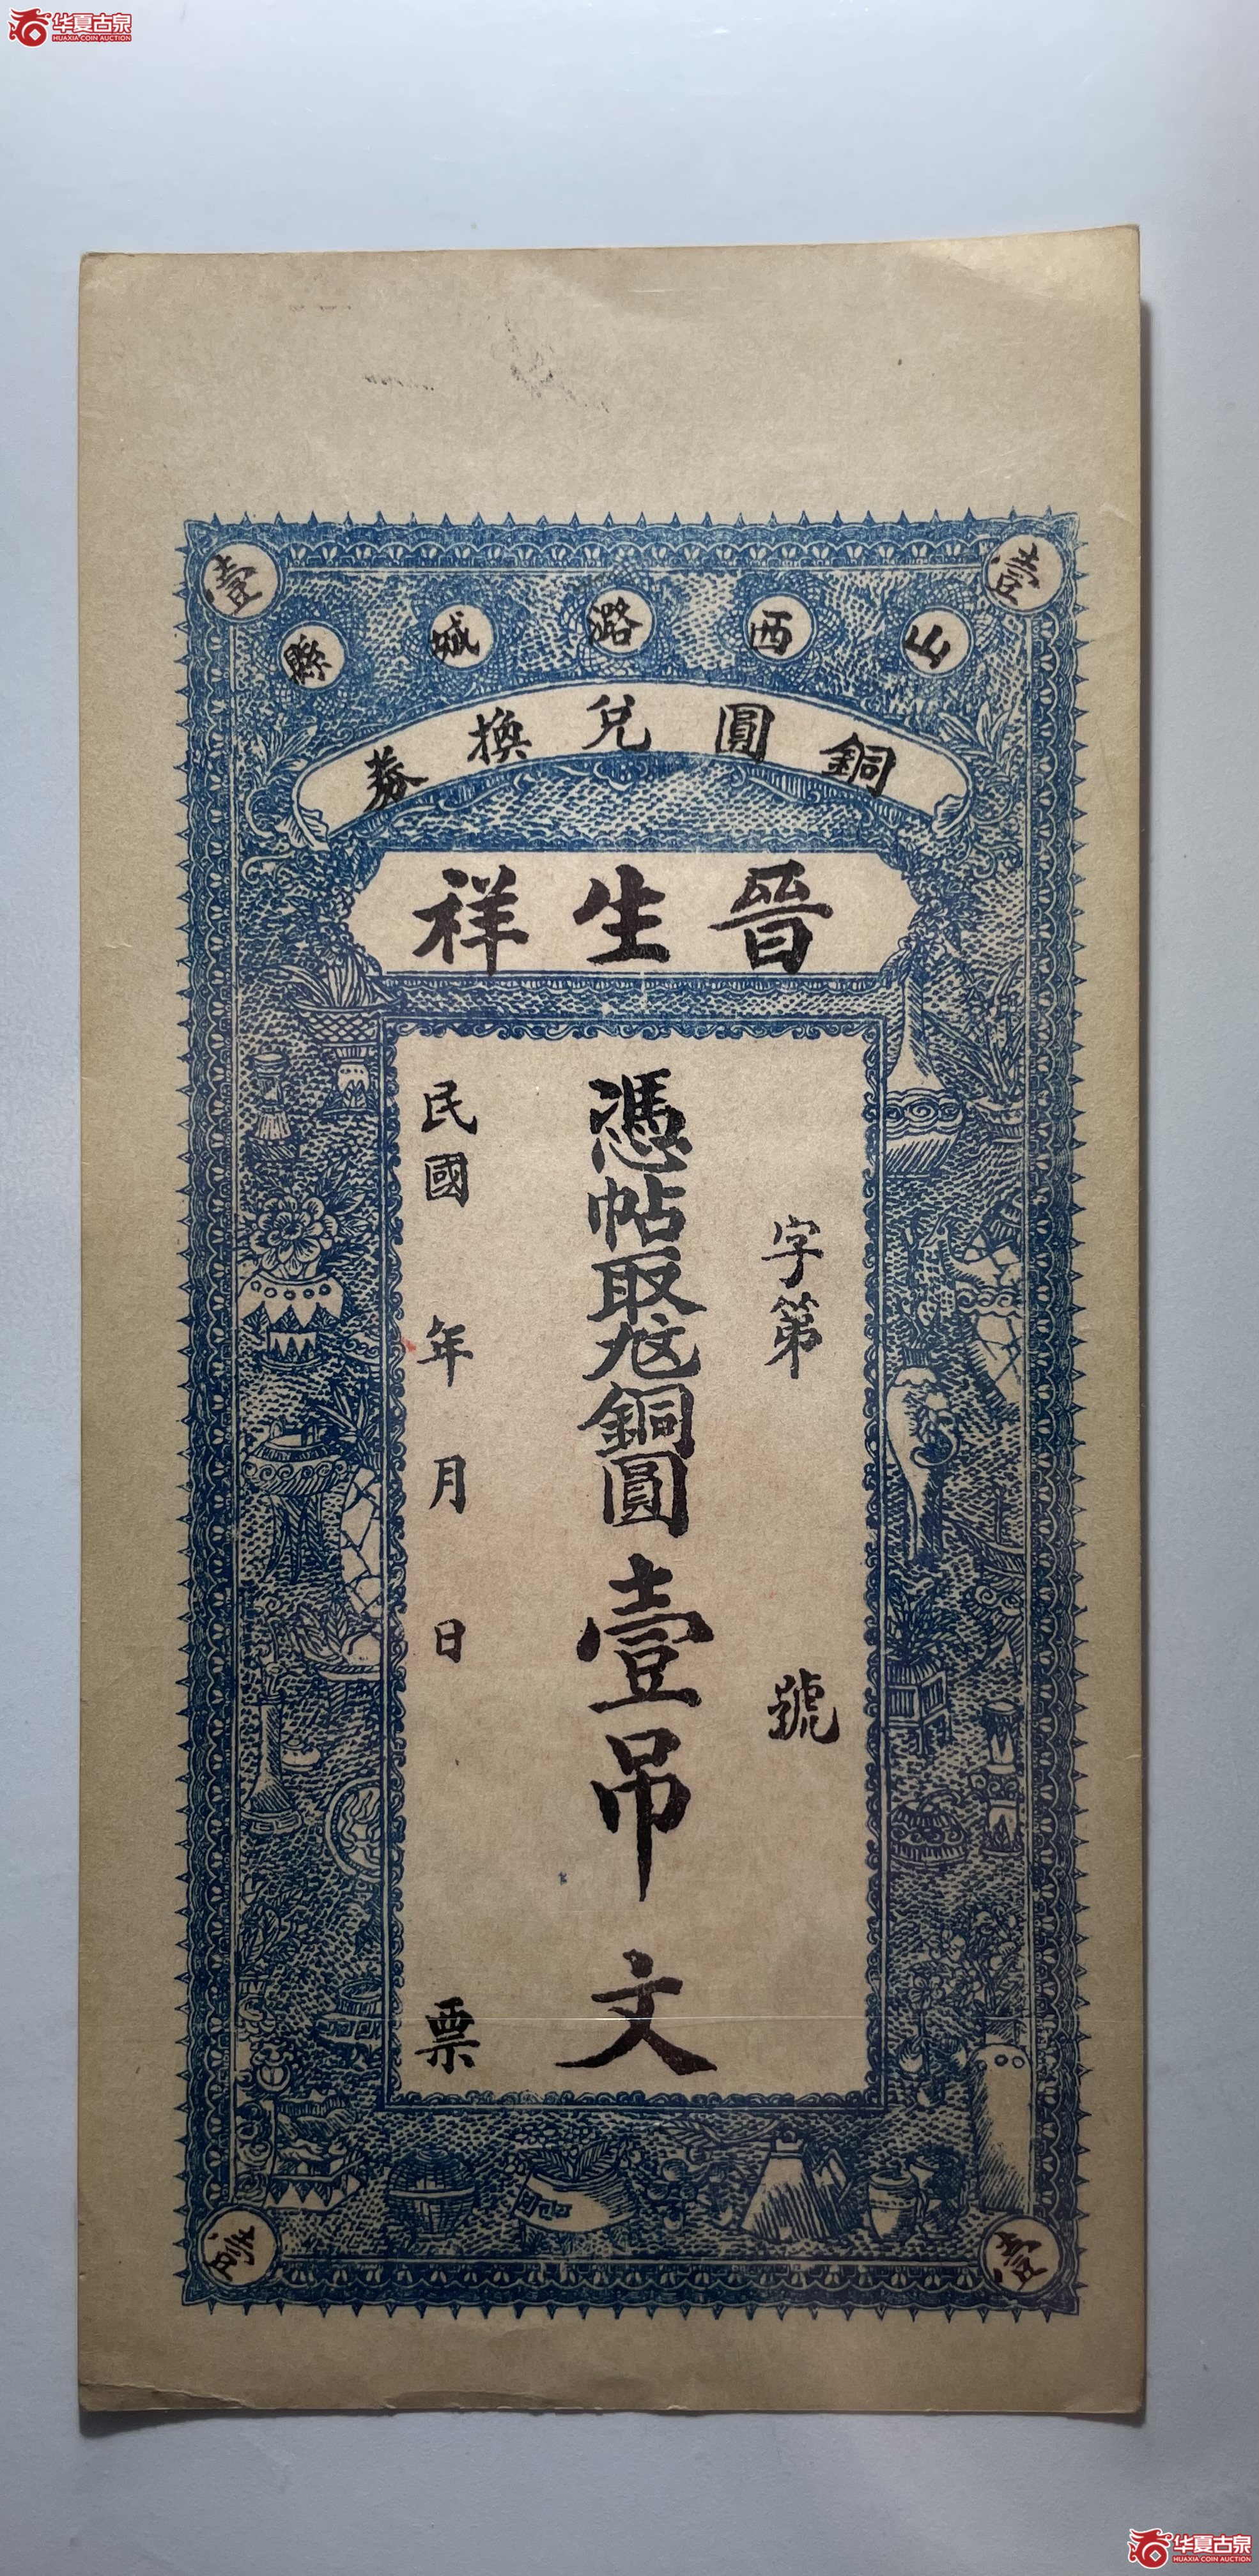 华夏古泉
HUAXIA COIN AUCTION
壹
壹
山西潞城縣
銅圓兌換券
晉生祥
字第 號
憑帖取尨銅圓壹吊文
民國 年 月 日 票
壹
壹
华夏古泉
HUAXIA COIN AUCTION